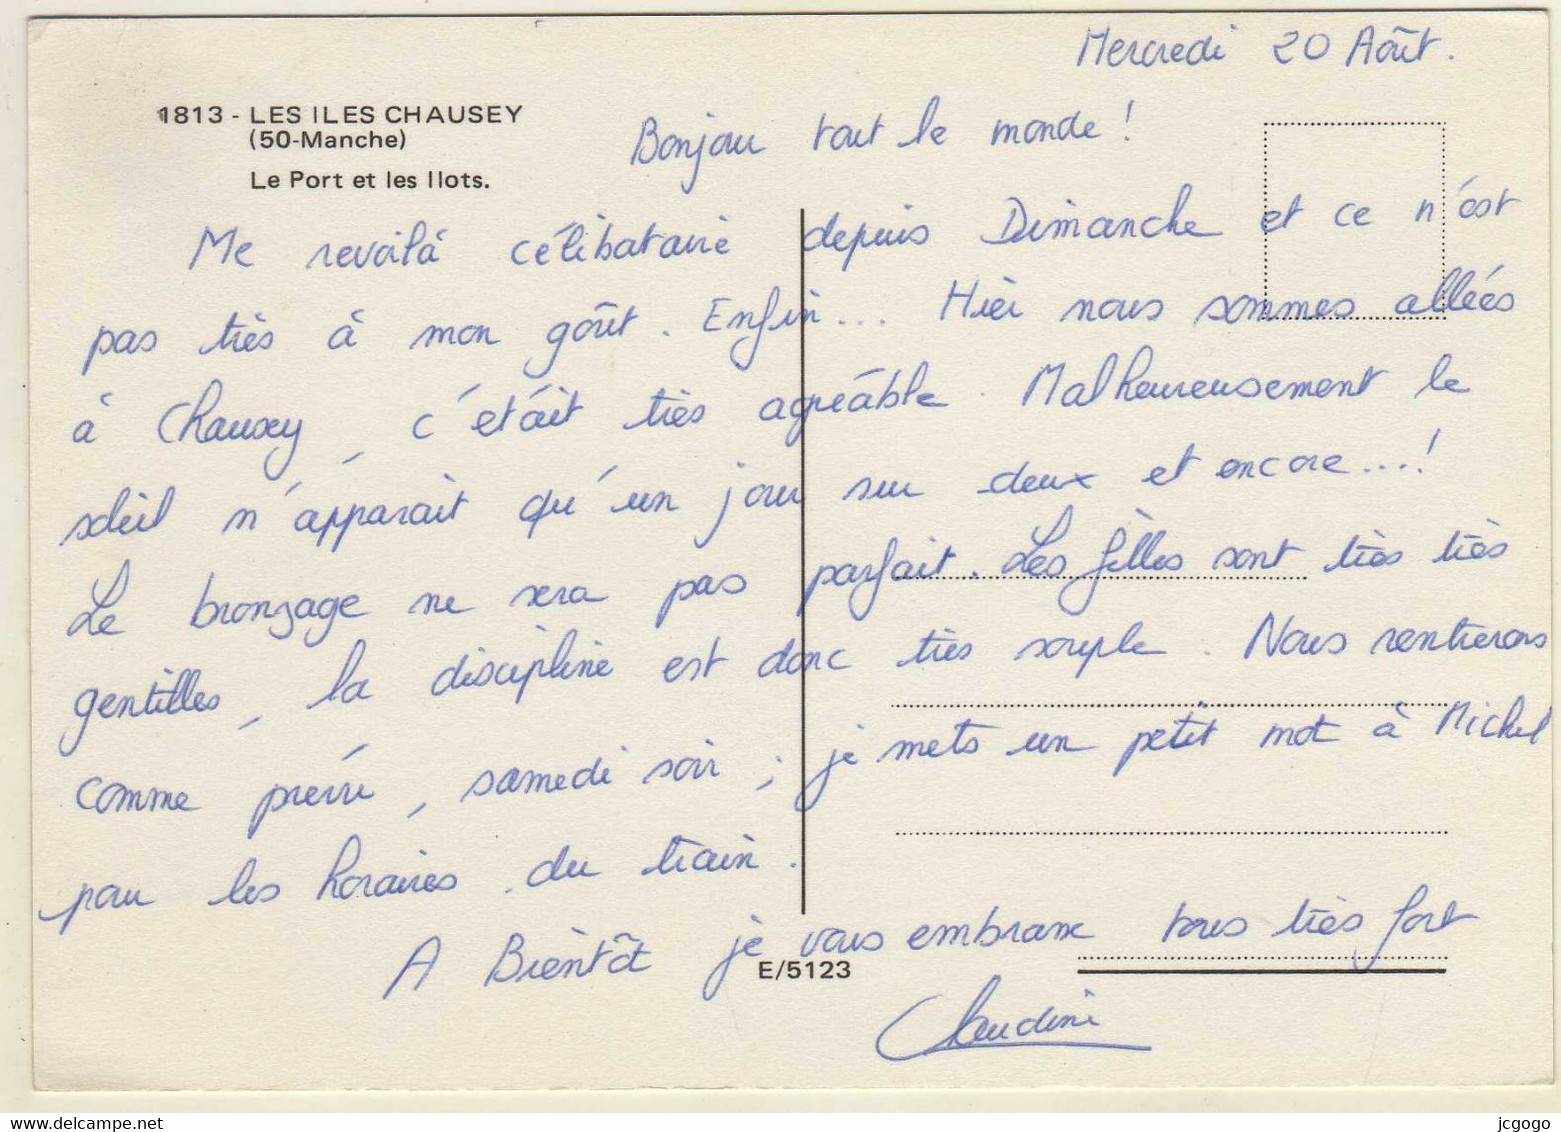 Mercredi 20 Août.
1813 - LES ILES CHAUSEY
(50-Manche)
Le Port et les Ilots.
Bonjour tout le monde !
Me revoilà célibataire depuis Dimanche et ce n'est
pas très à mon goût. Enfin... Hier nous sommes allées
à Chausey, c'était très agréable. Malheureusement le
soleil n'apparait qu'un jour sur deux et encore....!
Le bronzage ne sera pas parfait. Les filles sont très très
gentilles, la discipline est donc très souple. Nous rentrerons
comme prévu, samedi soir ; je mets un petit mot à Michel
pour les horaires du train.
A Bientôt je vous embrasse tous très fort
E/5123
Claudine
jcgogo